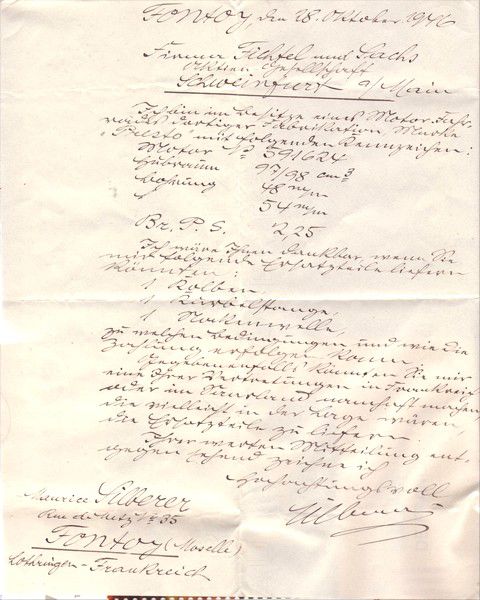 Fontoy, den 28. Oktober 1946
Firma Fichtel und Sachs
Aktien Gesellschaft
Schweinfurt a/Main
Ich bin im Besitze eines Motor-Fahr-
rades dortiger Fabrikation, Marke
"Presto" mit folgenden Kennzeichen:
Motor No 591624
Hubraum 97/98 cm3
Bohrung 48 m/m
54 m/m
Br. P. S. 2,25
Ich wäre Ihnen dankbar, wenn Sie
mir folgende Ersatzteile liefern
könnten:
1 Kolben,
1 Kurbelstange,
1 Nockenwelle,
zu welchen Bedingungen und wie die
Zahlung erfolgen kann.
Gegebenenfalls könnten Sie mir
eine Ihrer Vertretungen in Frankreich
oder im Saarland namhaft machen,
die vielleicht in der Lage wären,
die Ersatzteile zu liefern.
Ihrer werten Mitteilung ent-
gegen sehend zeichne ich
Hochachtungsvoll
Maurice Silberer
Rue de Metz No 35
Fontoy (Moselle)
Lothringen - Frankreich